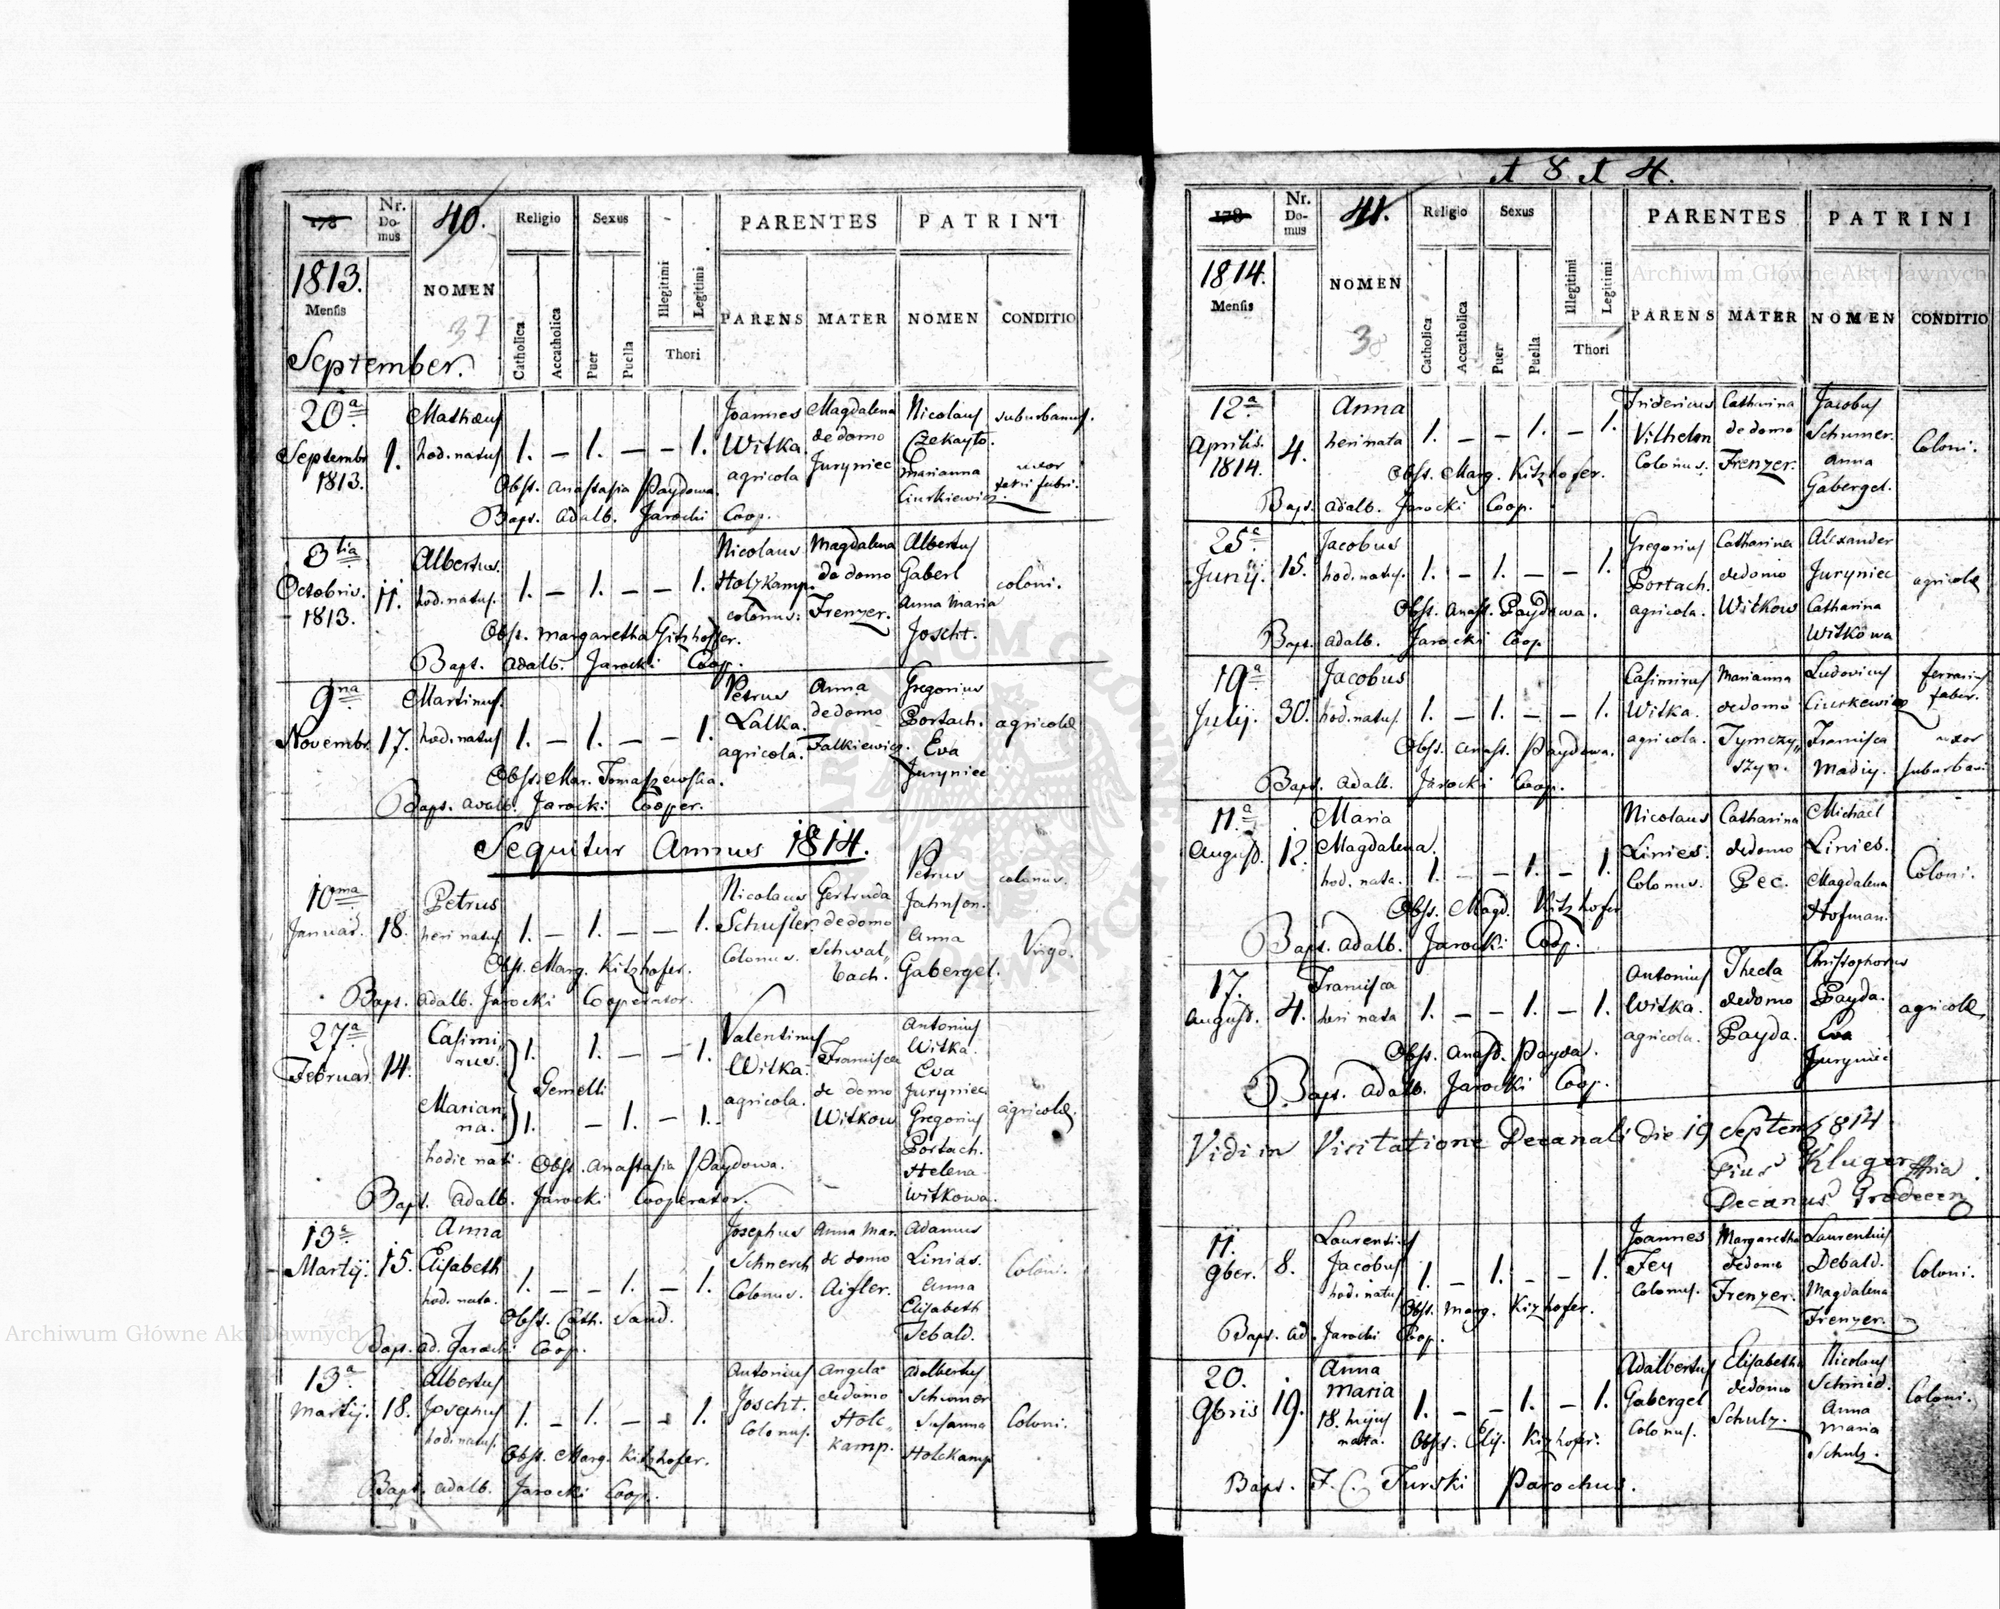 178
Nr. Do- mus
40.
Religio
Sexus
Illegitimi
Legitimi
Thori
PARENTES
PATRINI
1813.
Mensis
NOMEN
37
Catholica
Accatholica
Puer
Puella
PARENS
MATER
NOMEN
CONDITIO
September.
20ª Mathæus Joannes Magdalena Nicolaus suburbanus.
Septembr 1. hod. natus 1. — 1. — — 1. Witka de domo Czekayło.
1813. agricola Juryniec Marianna uxor
Obst. Anastasia Paydowa. Ciurkiewicz fabri.
Bapt. Adalb. Jarocki Coop.
3tia Albertus. Nicolaus Magdalena Albertus
Octobris. 11. hod. natus. 1. — 1. — — 1. Holzkamp. de domo Gaberl coloni.
1813. colonus. Frenzer. Anna Maria
Obst. Margaretha Gitzhoffer. Joscht.
Bapt. Adalb. Jarocki Coop.
9na Martinus. Petrus Anna Gregorius
Novembr. 17. hod. natus 1. — 1. — — 1. Lalka. de domo Portach. agricolæ
agricola. Falkiewicz. Eva
Obst. Mar. Tomaszewska. Juryniec
Bapt. Adalb. Jarocki Cooper.
Sequitur Annus 1814.
10ma Petrus Nicolaus Gertruda Petrus colonus.
Januar. 18. heri natus 1. — 1. — — 1. Schusler. de domo Jahnson.
Colonus. Schwal- Anna Virgo.
Obst. Marg. Kitzhofer. bach. Gabergel.
Bapt. Adalb. Jarocki Cooperator.
27ª Casimi- Valentinus Antonius
Februar. 14. rus. 1. 1. — — 1. Witka. Francisca Witka.
Gemelli agricola. de domo Eva
Marian- Witkow Juryniec agricolæ.
na. 1. — 1. — 1. Gregorius
Portach.
hodie nati Obst. Anastasia Paydowa. Helena
Bapt. Adalb. Jarocki Cooperator. Witkowa.
13ª Anna Josephus Anna Mar. Adamus
Martij. 15. Elisabeth 1. — — 1. — 1. Schnerch de domo Linias. Coloni.
hod. nata. Colonus. Aigler. Anna
Obst. Cath. Sand. Elisabeth
Bapt. Ad. Jarocki Coop. Tebald.
13ª Albertus Antonius Angela Adalbertus
Martij. 18. Josephus 1. — 1. — — 1. Joscht. de domo Schumer
hod. natus. Colonus. Holc- Susanna Coloni.
Obst. Marg. Kitzhofer. kamp. Holckamp
Bapt. Adalb. Jarocki Coop.
1814.
178
Nr. Do- mus
41.
Religio
Sexus
Illegitimi
Legitimi
Thori
PARENTES
PATRINI
1814.
Mensis
NOMEN
38
Catholica
Accatholica
Puer
Puella
PARENS
MATER
NOMEN
CONDITIO
12ª Anna Fridericus Catharina Jacobus
Aprilis. 4. heri nata 1. — — 1. — 1. Vilhelm de domo Schumer. Coloni.
1814. Colonus. Frenzer. Anna
Obst. Marg. Kitzhofer. Gabergel.
Bapt. Adalb. Jarocki Coop.
25ª Jacobus Gregorius Catharina Alexander
Junij. 15. hod. natus. 1. — 1. — — 1. Portach. de domo Juryniec agricolæ
agricola. Witkow Catharina
Obst. Anast. Paydowa. Witkowa
Bapt. Adalb. Jarocki Coop
19ª Jacobus Casimirus Marianna Ludovicus ferrarius
July. 30. hod. natus. 1. — 1. — — 1. Witka. de domo Ciurkewicz faber.
agricola. Tymczy- Francisca uxor
Obst. Anast. Paydowa. szyn. Madiy. suburbani
Bapt. Adalb. Jarocki Coop.
11.ª Maria Nicolaus Catharina Michael
August. 12. Magdalena. 1. — — 1. — 1. Linies. de domo Linies. Coloni.
hod. nata. Colonus. Pec. Magdalena
Obst. Magd. Kitzhofer Hofman.
Bapt. Adalb. Jarocki Coop.
17. Francisca Antonius Thecla Christophorus
August. 4. heri nata 1. — — 1. — 1. Witka. de domo Payda. agricolæ
agricola. Payda. Eva
Obst. Anast. Payda. Juryniec
Bapt. Adalb. Jarocki Coop.
Vidi in Visitatione Decanali die 19 Septem 1814
Pius Kluger
Decanus Grodecen
11. Laurentius Joannes Margaretha Laurentius
9ber. 8. Jacobus 1. — 1. — — 1. Fey de domo Debald. Coloni.
hod. natus Colonus. Frenzer. Magdalena
Obst. Marg. Kizhofer. Frenzer.
Bapt. Ad. Jarocki Coop.
20. Anna Adalbertus Elisabeth Nicolaus
9bris 19. Maria 1. — — 1. — 1. Gabergel de domo Schmid. Coloni.
18. hujus Colonus. Schulz. Anna
nata. Obst. Elis. Kizhofer. Maria
Schulz.
Bapt. F. C. Turski Parochus.
Archiwum Główne Akt Dawnych
Archiwum Główne Akt Dawnych
ARCHIWUM GŁÓWNE AKT DAWNYCH